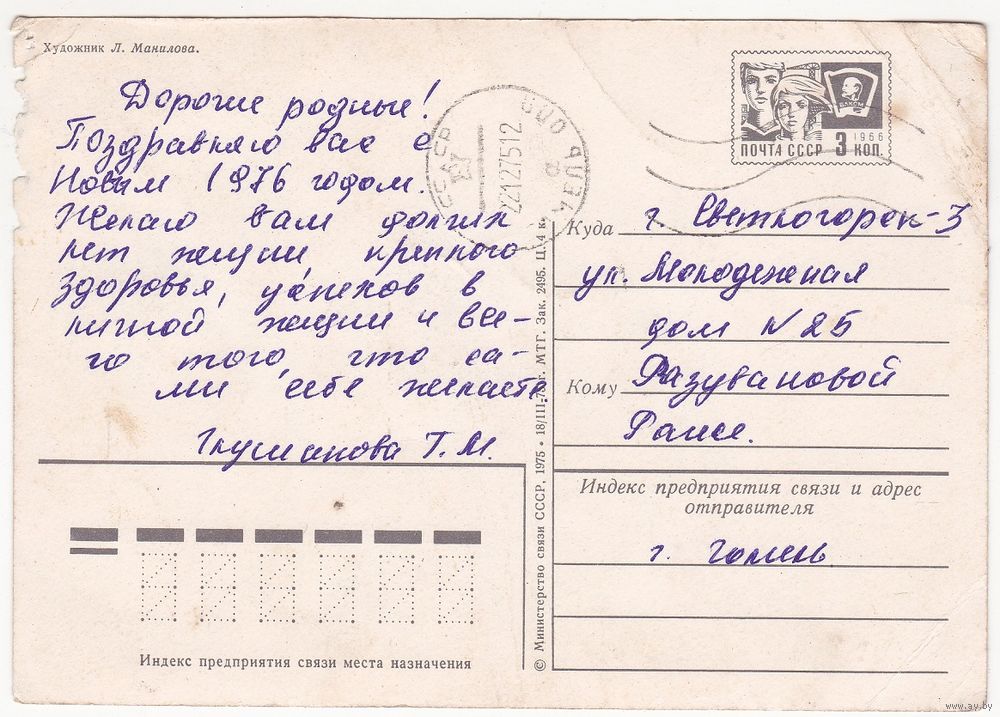 Художник Л. Манилова.
Дорогие родные!
Поздравляю вас с
Новым 1976 годом.
Желаю вам долгих
лет жизни, крепкого
здоровья, успехов в
личной жизни и все-
го того, что са-
ми себе желаете.
Глушакова Т.М.
Индекс предприятия связи места назначения
СССР
22127512
© Министерство связи СССР, 1975 • 18/III-75 г. МТГ. Зак. 2495. Ц. 4 к.
ВЛКСМ
1966
ПОЧТА СССР 3 КОП.
Куда г. Светлогорск-3
ул. Молодежная
дом № 25
Кому Разувановой
Раисе.
Индекс предприятия связи и адрес
отправителя
г. Гомель
www.ay.by